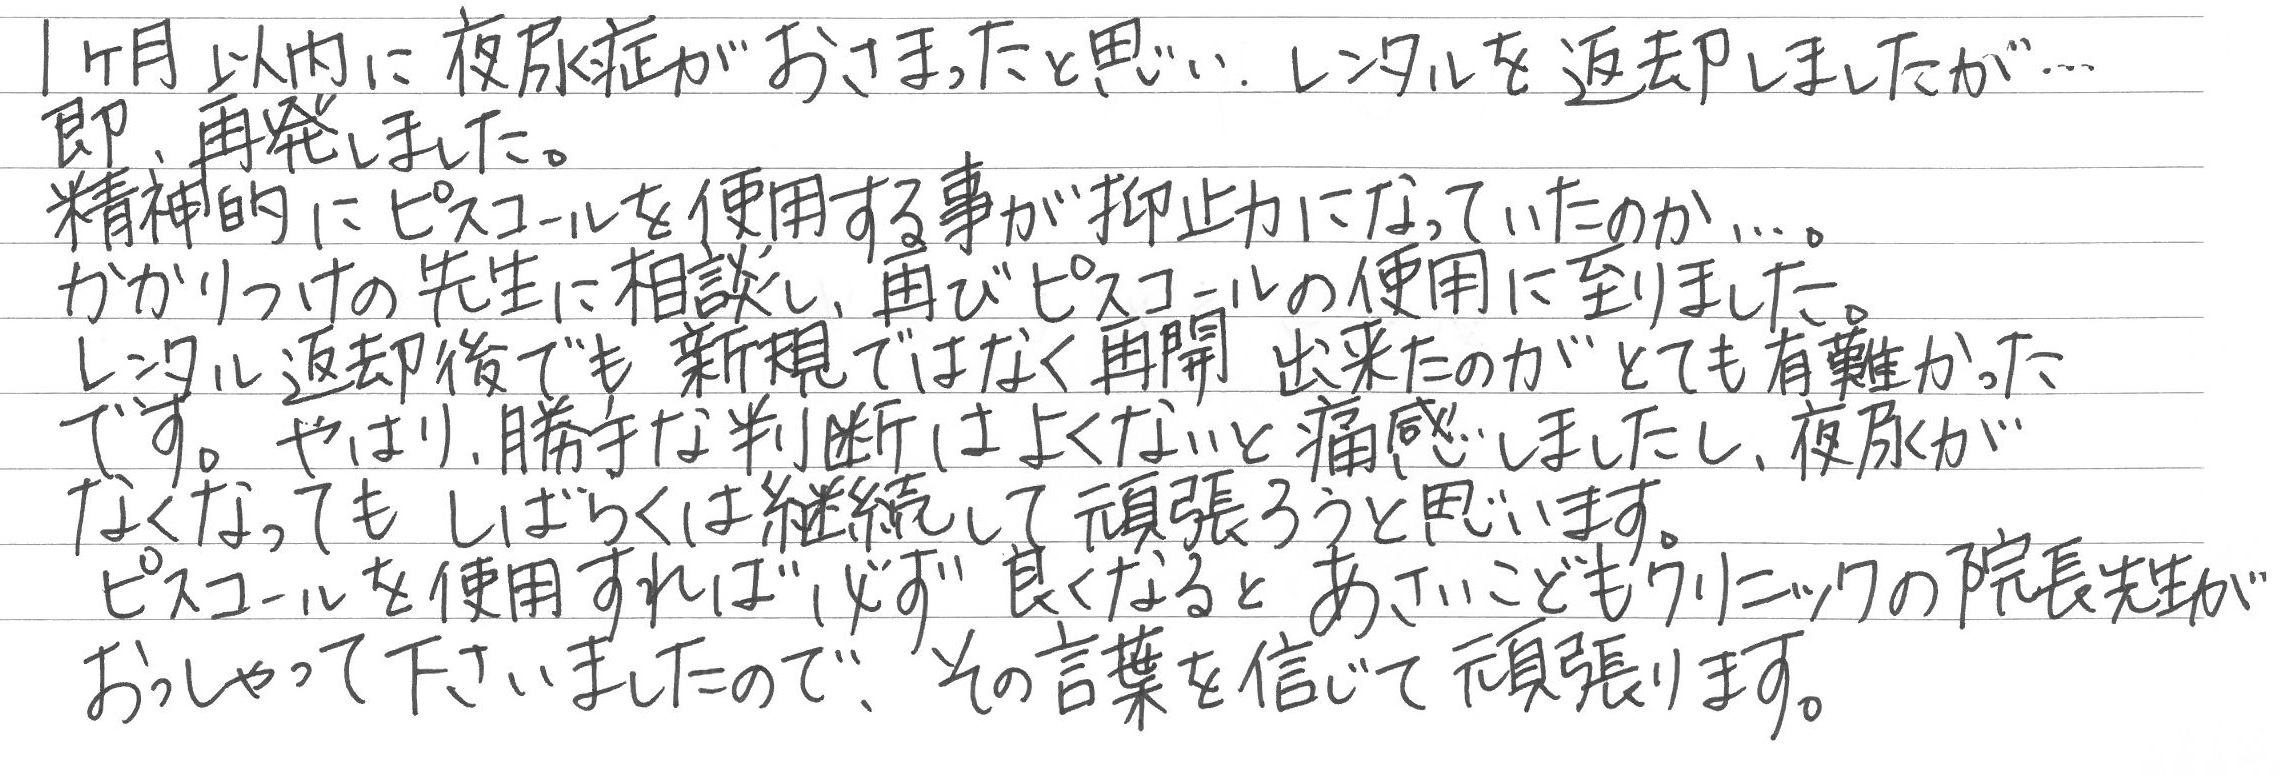 1ヶ月以内に夜尿症がおさまったと思い、レンタルを返却しましたが…
即、再発しました。
精神的にピスコールを使用する事が抑止力になっていたのか…。
かかりつけの先生に相談し、再びピスコールの使用に至りました。
レンタル返却後でも新規ではなく再開出来たのがとても有難かった
です。やはり、勝手な判断はよくないと痛感しましたし、夜尿が
なくなってもしばらくは継続して頑張ろうと思います。
ピスコールを使用すれば必ず良くなるとあさいこどもクリニックの院長先生が
おっしゃって下さいましたので、その言葉を信じて頑張ります。